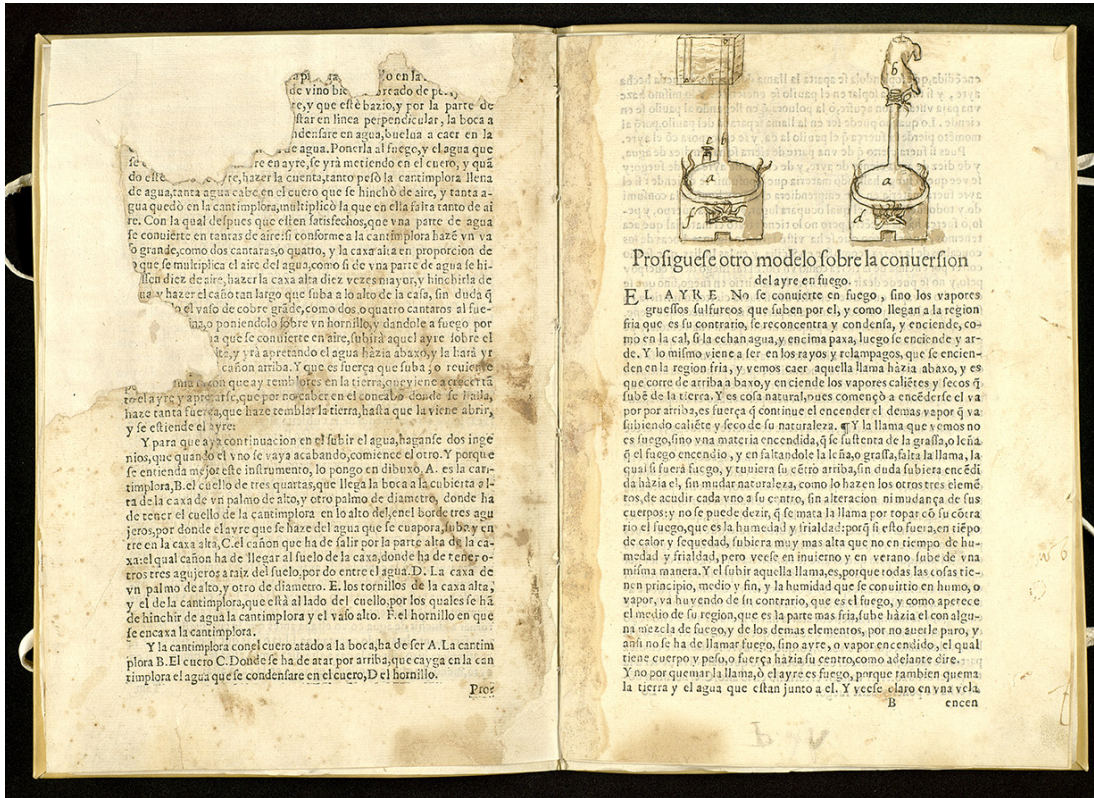 o en la
de vino
re, y que estè bazio, y por la parte de
star en linea perpendicular, la boca a
ndensare en agua, buelua a caer en la
de agua. Ponerla al fuego, y el agua que
se re en ayre, se yrà metiendo en el cuero, y quã
do estè re, hazer la cuenta, tanto pesò la cantimplora llena
de agua, tanta agua cabe en el cuero que se hinchò de aire, y tanta a-
gua quedò en la cantimplora, multiplicò la que en ella falta tanto de ai
re. Con la qual despues que esten satisfechos, que vna parte de agua
se conuierte en tantas de aire: si conforme a la cantimplora hazẽ vn va
so grande, como dos cantaros, o quatro, y la caxa alta en proporcion de
que se multiplica el aire del agua, como si de vna parte de agua se hi-
ssen diez de aire, hazer la caxa alta diez vezes mayor, y hinchirla de
ua y hazer el cañò tan largo que suba a lo alto de la casa, sin duda q̃
o el vaso de cobre grãde, como dos, o quatro cantaros al fue-
ina, o poniendolo sobre vn hornillo, y dandole a fuego por
na que se conuierte en aire, subirà aquel ayre sobre el
lta, y yrà apretando el agua hàzia abaxo, y la harà yr
cañon arriba. Y que es fuerça que suba, o reuiente
ma razon que ay temblores en la tierra, que viene a crecer tã
to el ayre y apretarse, que por no caber en el concabo donde se halla,
haze tanta fuerça, que haze temblar la tierra, hasta que la viene abrir,
y se estiende el ayre:
Y para que aya continuacion en el subir el agua, haganse dos inge
nios, que quando el vno se vaya acabando, comience el otro. Y porque
se entienda mejor este instrumento, lo pongo en dibuxo, A. es la can-
timplora, B. el cuello de tres quartas, que llega la boca a la cubierta a l-
ta de la caxa de vn palmo de alto, y otro palmo de diametro, donde ha
de tener el cuello de la cantimplora en lo alto del, en el borde tres agu
jeros, por donde el ayre que se haze del agua que se euapora, suba y en
tre en la caxa alta, C. el cañon que ha de salir por la parte alta de la ca-
xa: el qual cañon ha de llegar al suelo de la caxa, donde ha de tener o-
tros tres agujeros a raiz del suelo, por do entre el agua. D. La caxa de
vn palmo de alto, y otro de diametro. E. los tornillos de la caxa alta,
y el de la cantimplora, que està al lado del cuello, por los quales se hã
de hinchir de agua la cantimplora y el vaso alto. F. el hornillo en que
se encaxa la cantimplora.
Y la cantimplora con el cuero atado a la boca, ha de ser A. La cantim
plora B. El cuero C. Donde se ha de atar por arriba, que cayga en la can
timplora el agua que se condensare en el cuero, D el hornillo.
Pros
b
c b
a
a
f
d
Prosiguese otro modelo sobre la conuersion
del ayre en fuego.
EL AYRE No se conuierte en fuego, sino los vapores
gruessos sulfureos que suben por el, y como llegan a la region
fria que es su contrario, se reconcentra y condensa, y enciende, co-
mo en la cal, si la echan agua, y encima paxa, luego se enciende y ar-
de. Y lo mismo viene a ser en los rayos y relampagos, que se encien-
den en la region fria, y vemos caer aquella llama hàzia abaxo, y es
que corre de arriba a baxo, y enciende los vapores caliẽtes y secos q̃
subẽ de la tierra. Y es cosa natural, pues començò a encẽderse el va
por por arriba, es fuerça q̃ continue el encender el demas vapor q̃ va
subiendo caliẽte y seco de su naturaleza. ¶ Y la llama que vemos no
es fuego, sino vna materia encendida, q̃ se sustenta de la grassa, o leña
q̃ el fuego encendio, y en faltandole la leña, o grassa, falta la llama, la
qual si fuera fuego, y tuuiera su cẽtro arriba, sin duda subiera encẽdi
da hàzia el, sin mudar naturaleza, como lo hazen los otros tres elemẽ
tos, de acudir cada vno a su centro, sin alteracion ni mudança de sus
cuerpos: y no se puede dezir, q̃ se mata la llama por topar cõ su cõtra
rio el fuego, que es la humedad y frialdad: porq̃ si esto fuera, en tiẽpo
de calor y sequedad, subiera muy mas alta que no en tiempo de hu-
medad y frialdad, pero veese en inuierno y en verano sube de vna
misma manera. Y el subir aquella llama, es, porque todas las cosas tie-
nen principio, medio y fin, y la humidad que se conuirtio en humo, o
vapor, va huyendo de su contrario, que es el fuego, y como aperece
el medio de su region, que es la parte mas fria, sube hàzia el con algu-
na mezcla de fuego, y de los demas elementos, por no auerle puro, y
ansi no se ha de llamar fuego, sino ayre, o vapor encendido, el qual
tiene cuerpo y peso, o fuerça hàzia su centro, como adelante dire.
Y no por quemar la llama, ò el ayre es fuego, porque tambien quema
la tierra y el agua que estan junto a el. Y veese claro en vna vela
B encen